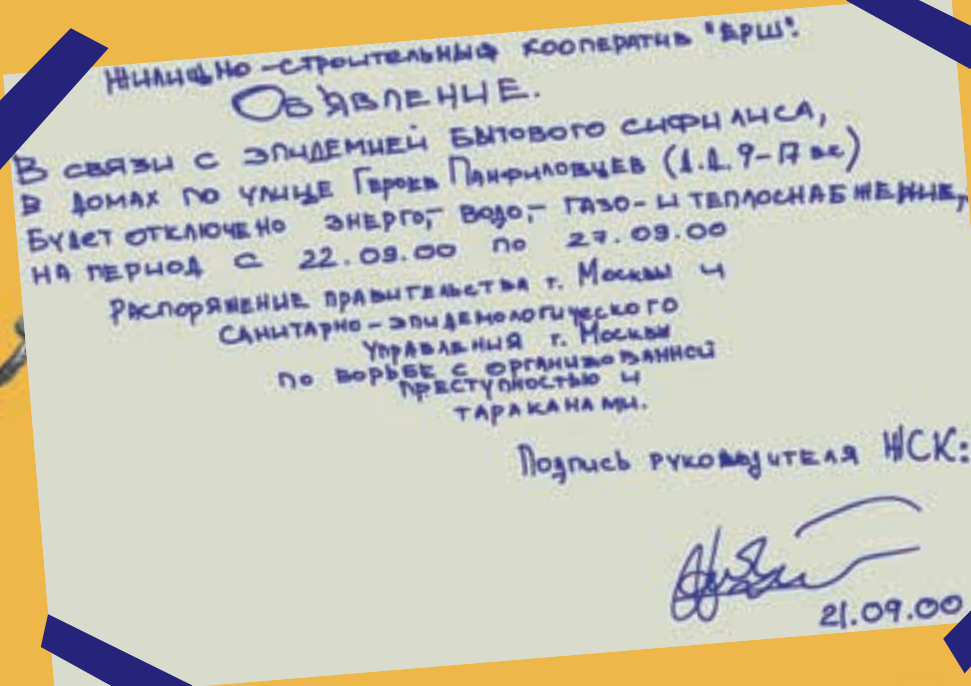 Жилищно-строительный кооператив "ЁРШ".
Объявление.
В связи с эпидемией бытового сифилиса,
в домах по улице Героев Панфиловцев (д.д. 9-17 вс)
будет отключено энерго,- водо,- газо- и теплоснабжение,
на период с 22.09.00 по 27.09.00
Распоряжение правительства г. Москвы и
санитарно-эпидемологического
управления г. Москвы
по борьбе с организованной
преступностью и
тараканами.
Подпись руководителя ЖСК:
21.09.00